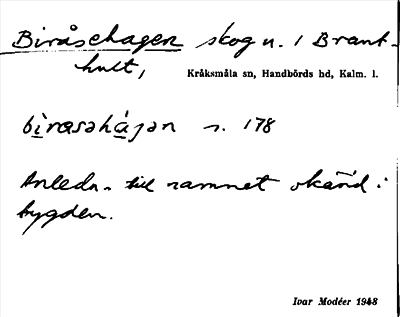 Biråsehagen skog u. i Brant-
hult,
Kråksmåla sn, Handbörds hd, Kalm. l.
s. 178
Anledn. till namnet okänd i
bygden.
Ivar Modéer 1948